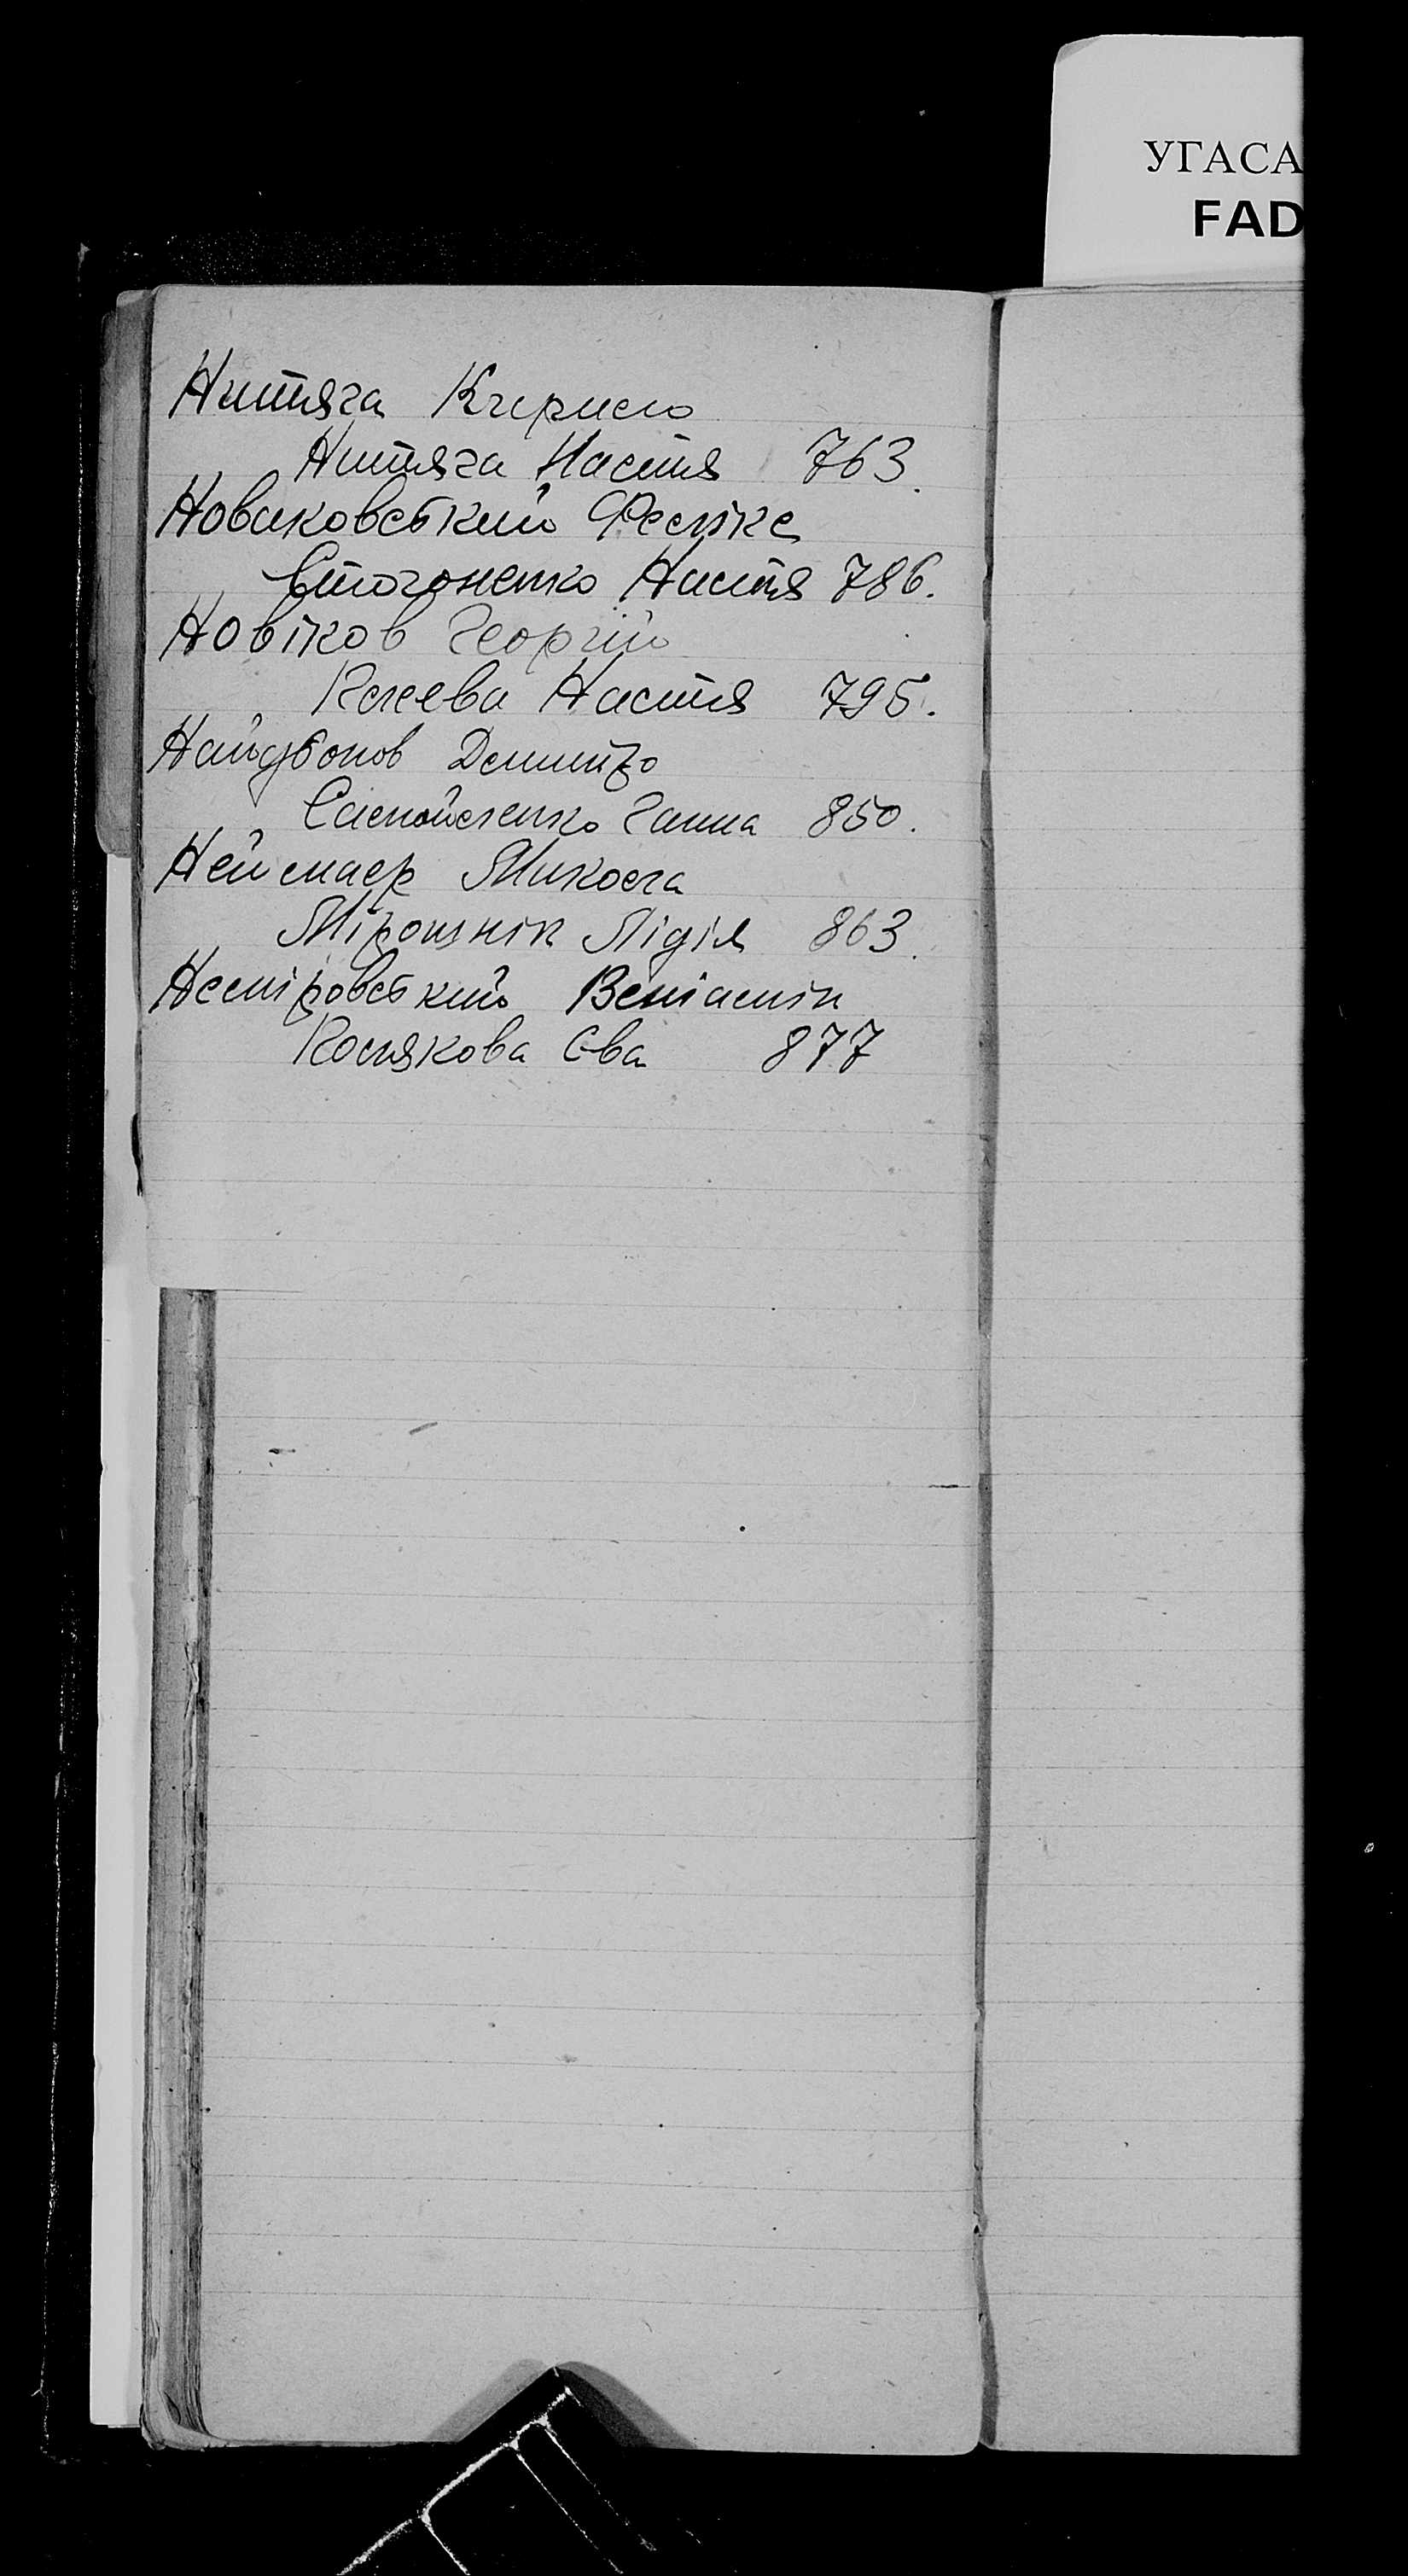 УГАСА
FAD
Нитяга Кирило
Нитяга Настя 763.
Новаковський Фелікс
Стогоненко Настя 786.
Новіков Георгій
Настя 795.
Найдьонов Демитро
Самойленко Ганна 850.
Неймаєр Микола
Мірошнік Лідія 863.
Неміровський Веніамін
Полякова Єва 877